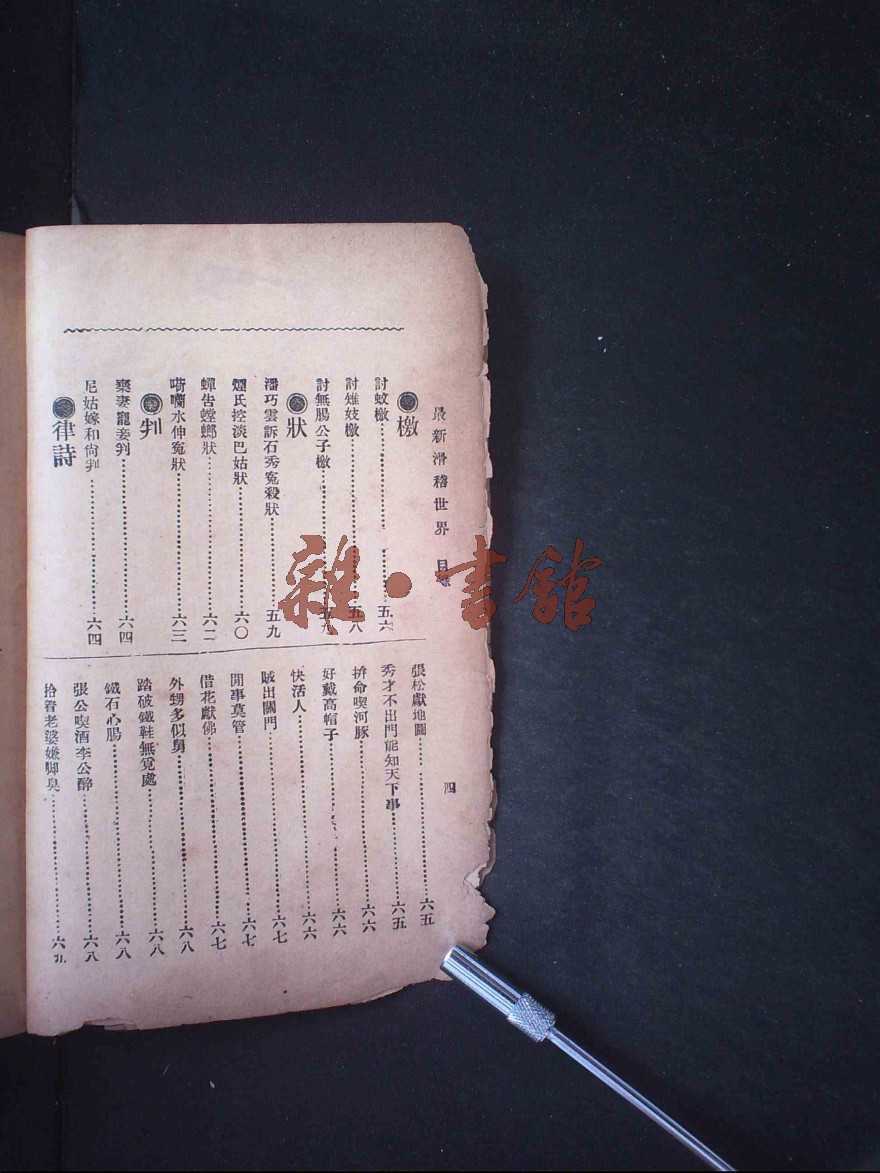 最新滑稽世界 目錄
四
檄
討蚊檄……五六
討雉妓檄……五八
討無腸公子檄……五九
狀
潘巧雲訴石秀寃殺狀……五九
煙氏控淡巴姑狀……六〇
蟬告螳螂狀……六二
嗬囒水伸寃狀……六三
判
棄妻寵妾判……六四
尼姑嫁和尙判……六四
律詩
張松獻地圖……六五
秀才不出門能知天下事……六五
拚命喫河豚……六六
好戴高帽子……六六
快活人……六六
賊出關門……六七
閒事莫管……六七
借花獻佛……六七
外甥多似舅……六八
踏破鐵鞋無覓處……六八
鐵石心腸……六八
張公喫酒李公醉……六八
拾着老婆嫌脚臭……六九
雜·書館